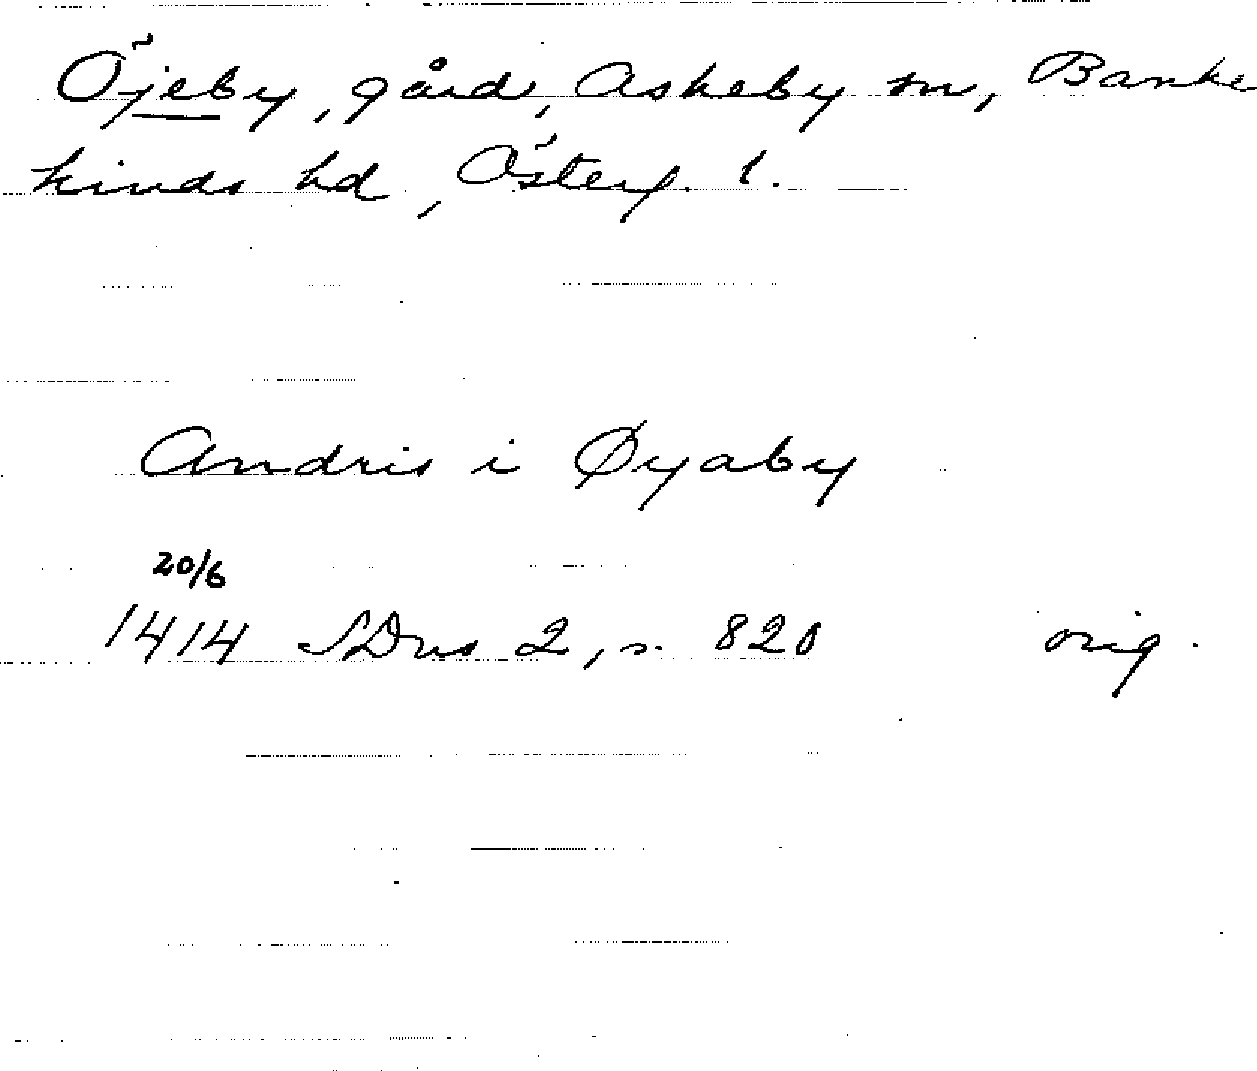 Öjeby, gård, Askeby sn, Banke
kinds hd, Österg. l.
Andris i Øyaby
20/6
1414 SDns 2, s. 820 orig.